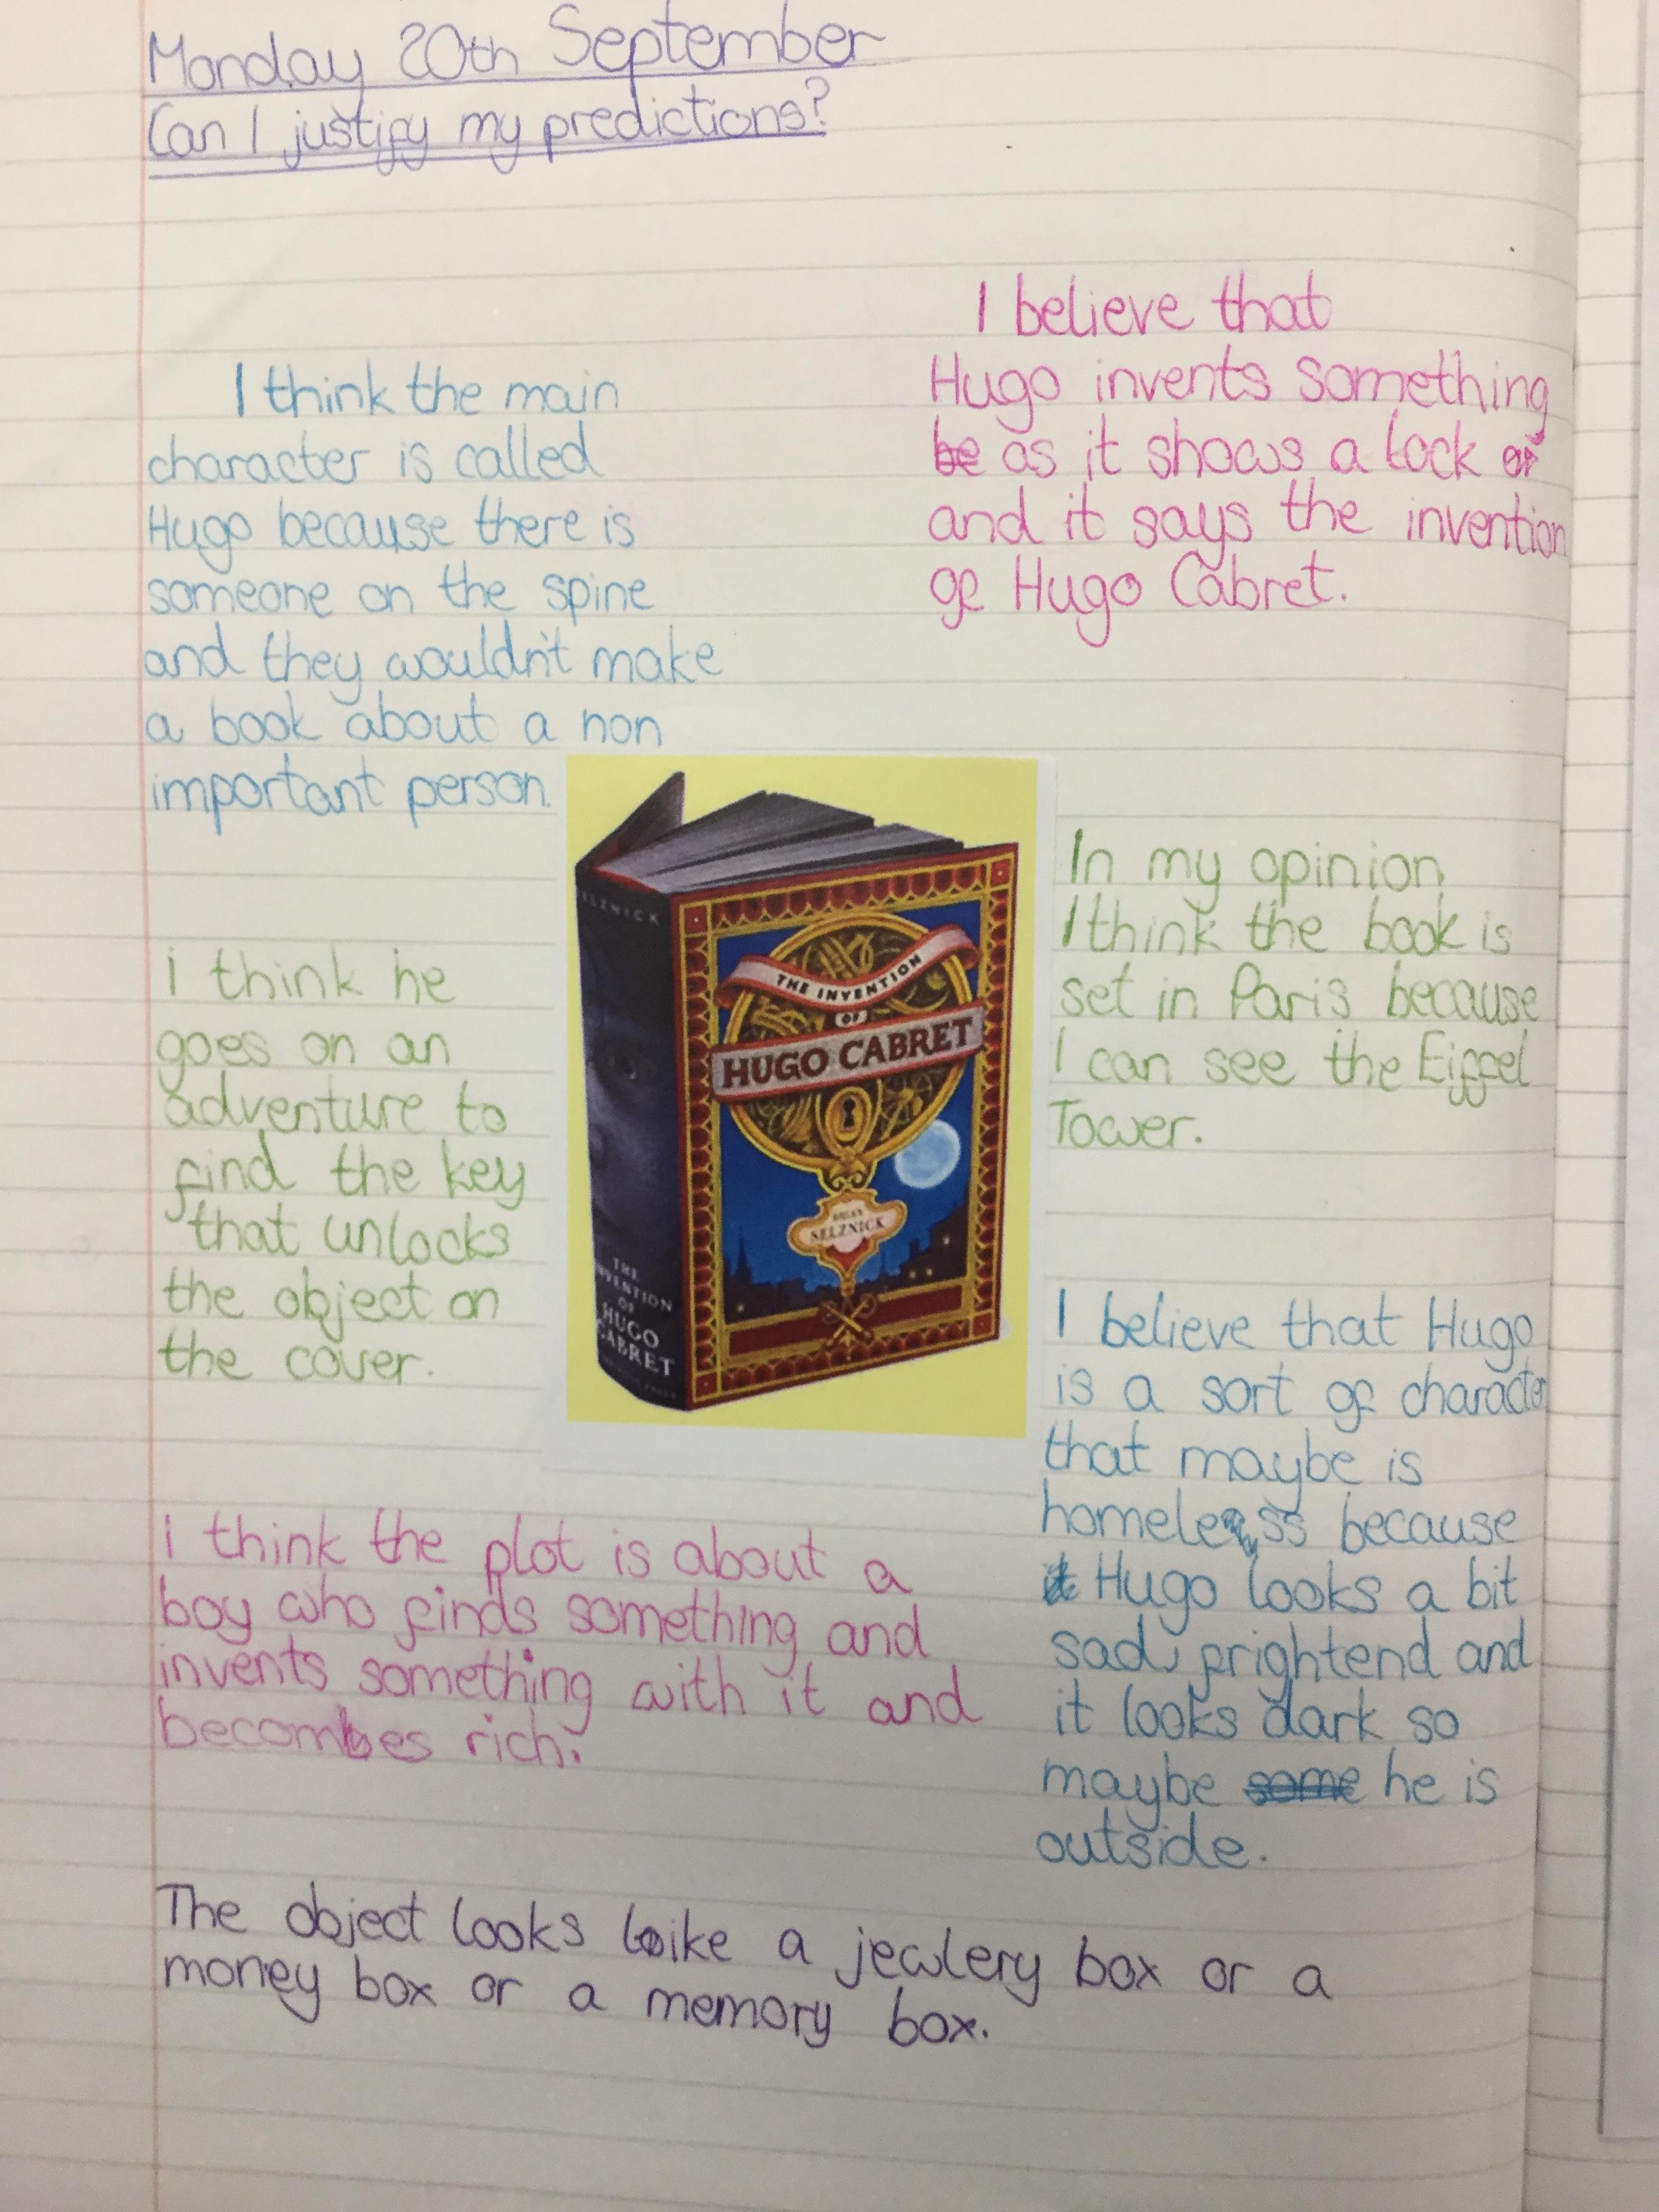 Monday 20th September
Can I justify my predictions?
I think the main
character is called
Hugo because there is
someone on the spine
and they wouldn't make
a book about a non
important person.
I believe that
Hugo invents something
be as it shows a lock or
and it says the invention
of Hugo Cabret.
i think he
goes on an
adventure to
find the key
that unlocks
the object on
the cover.
SELZNICK
THE INVENTION
OF
HUGO CABRET
BRIAN
SELZNICK
THE
INVENTION
OF
HUGO
CABRET
In my opinion,
I think the book is
set in Paris because
I can see the Eiffel
Tower.
I believe that Hugo
is a sort of character
that maybe is
homeless because
it Hugo looks a bit
sad, frightend and
it looks dark so
maybe some he is
outside.
i think the plot is about a
boy who finds something and
invents something with it and
becomes rich.
The object looks like a jewlery box or a
money box or a memory box.